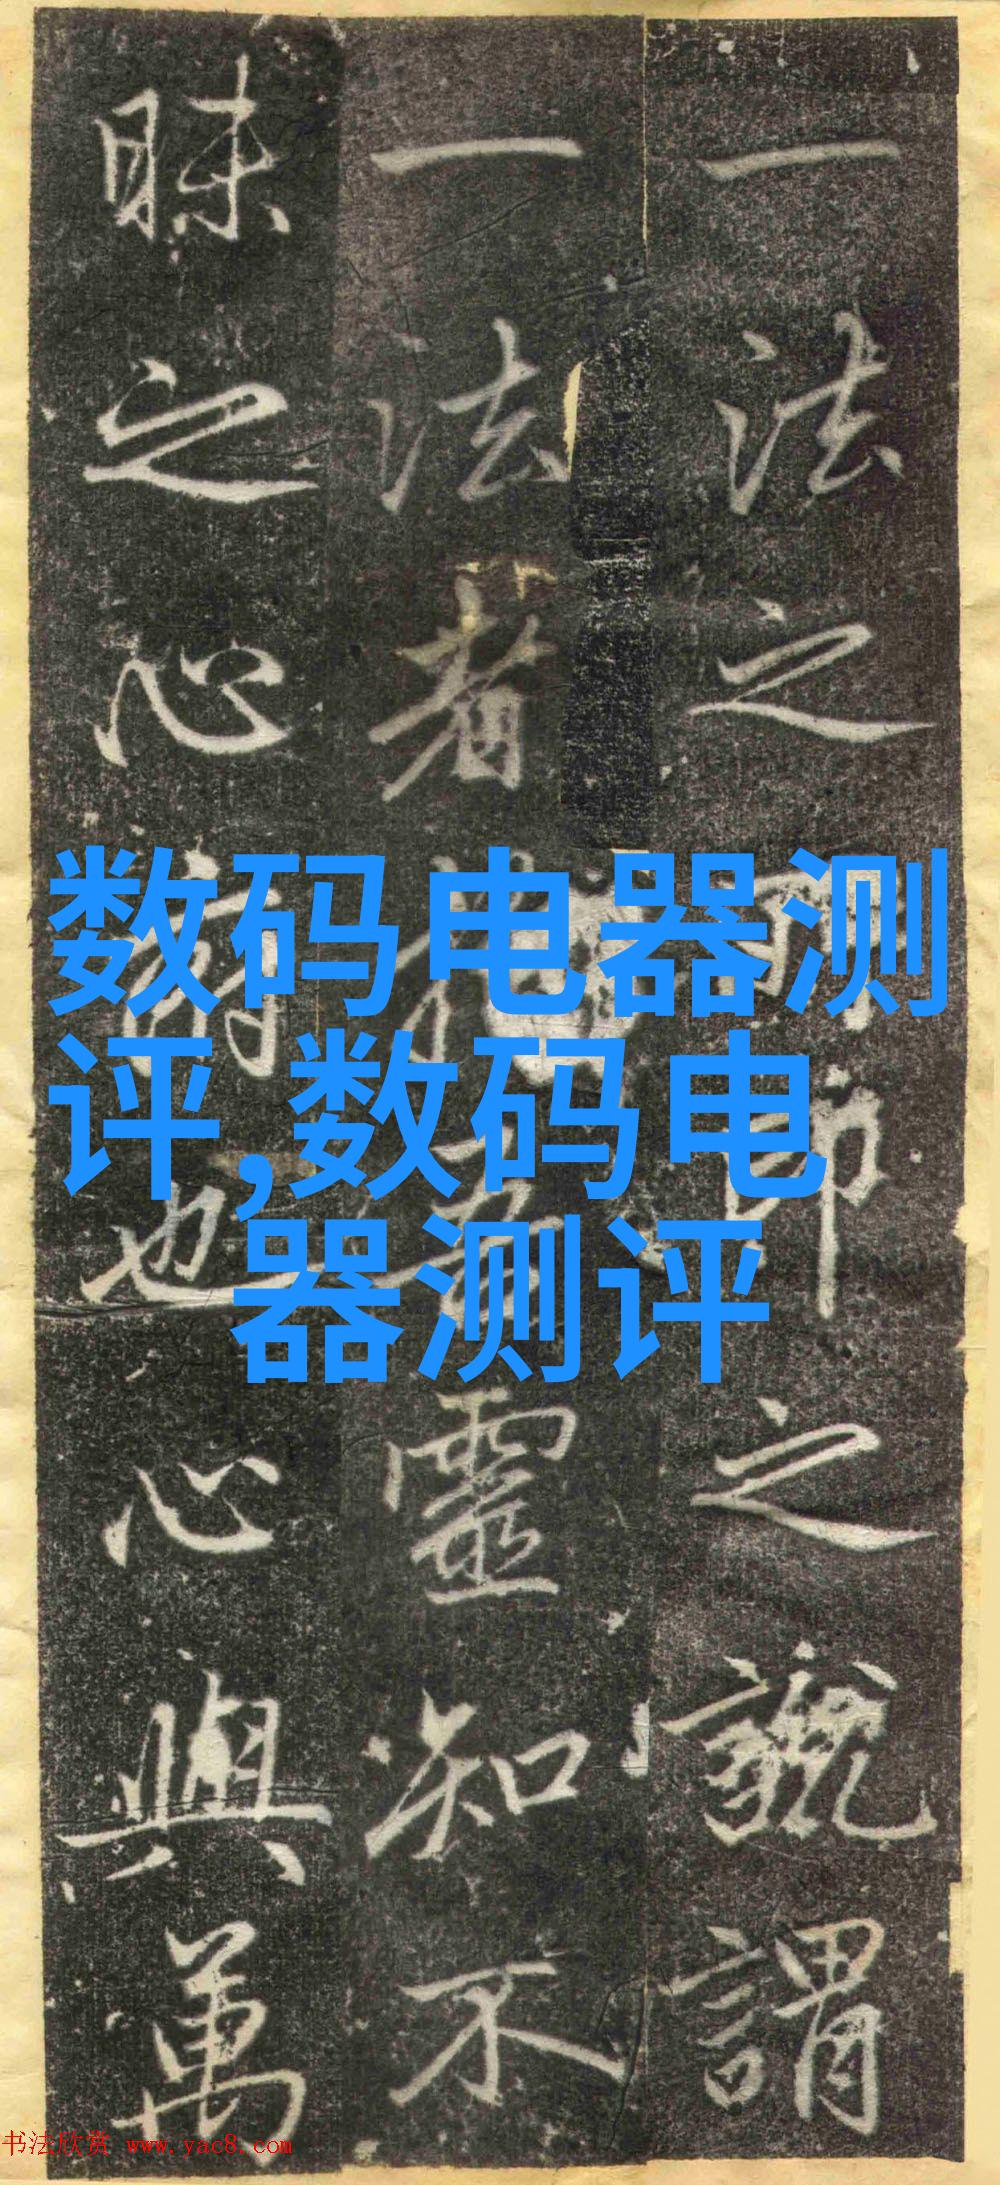 一法之之謂
一法者靈知不
昧之心也心與萬
数码电器测
评,数码电
器测评
书法欣赏 www.yac8.com